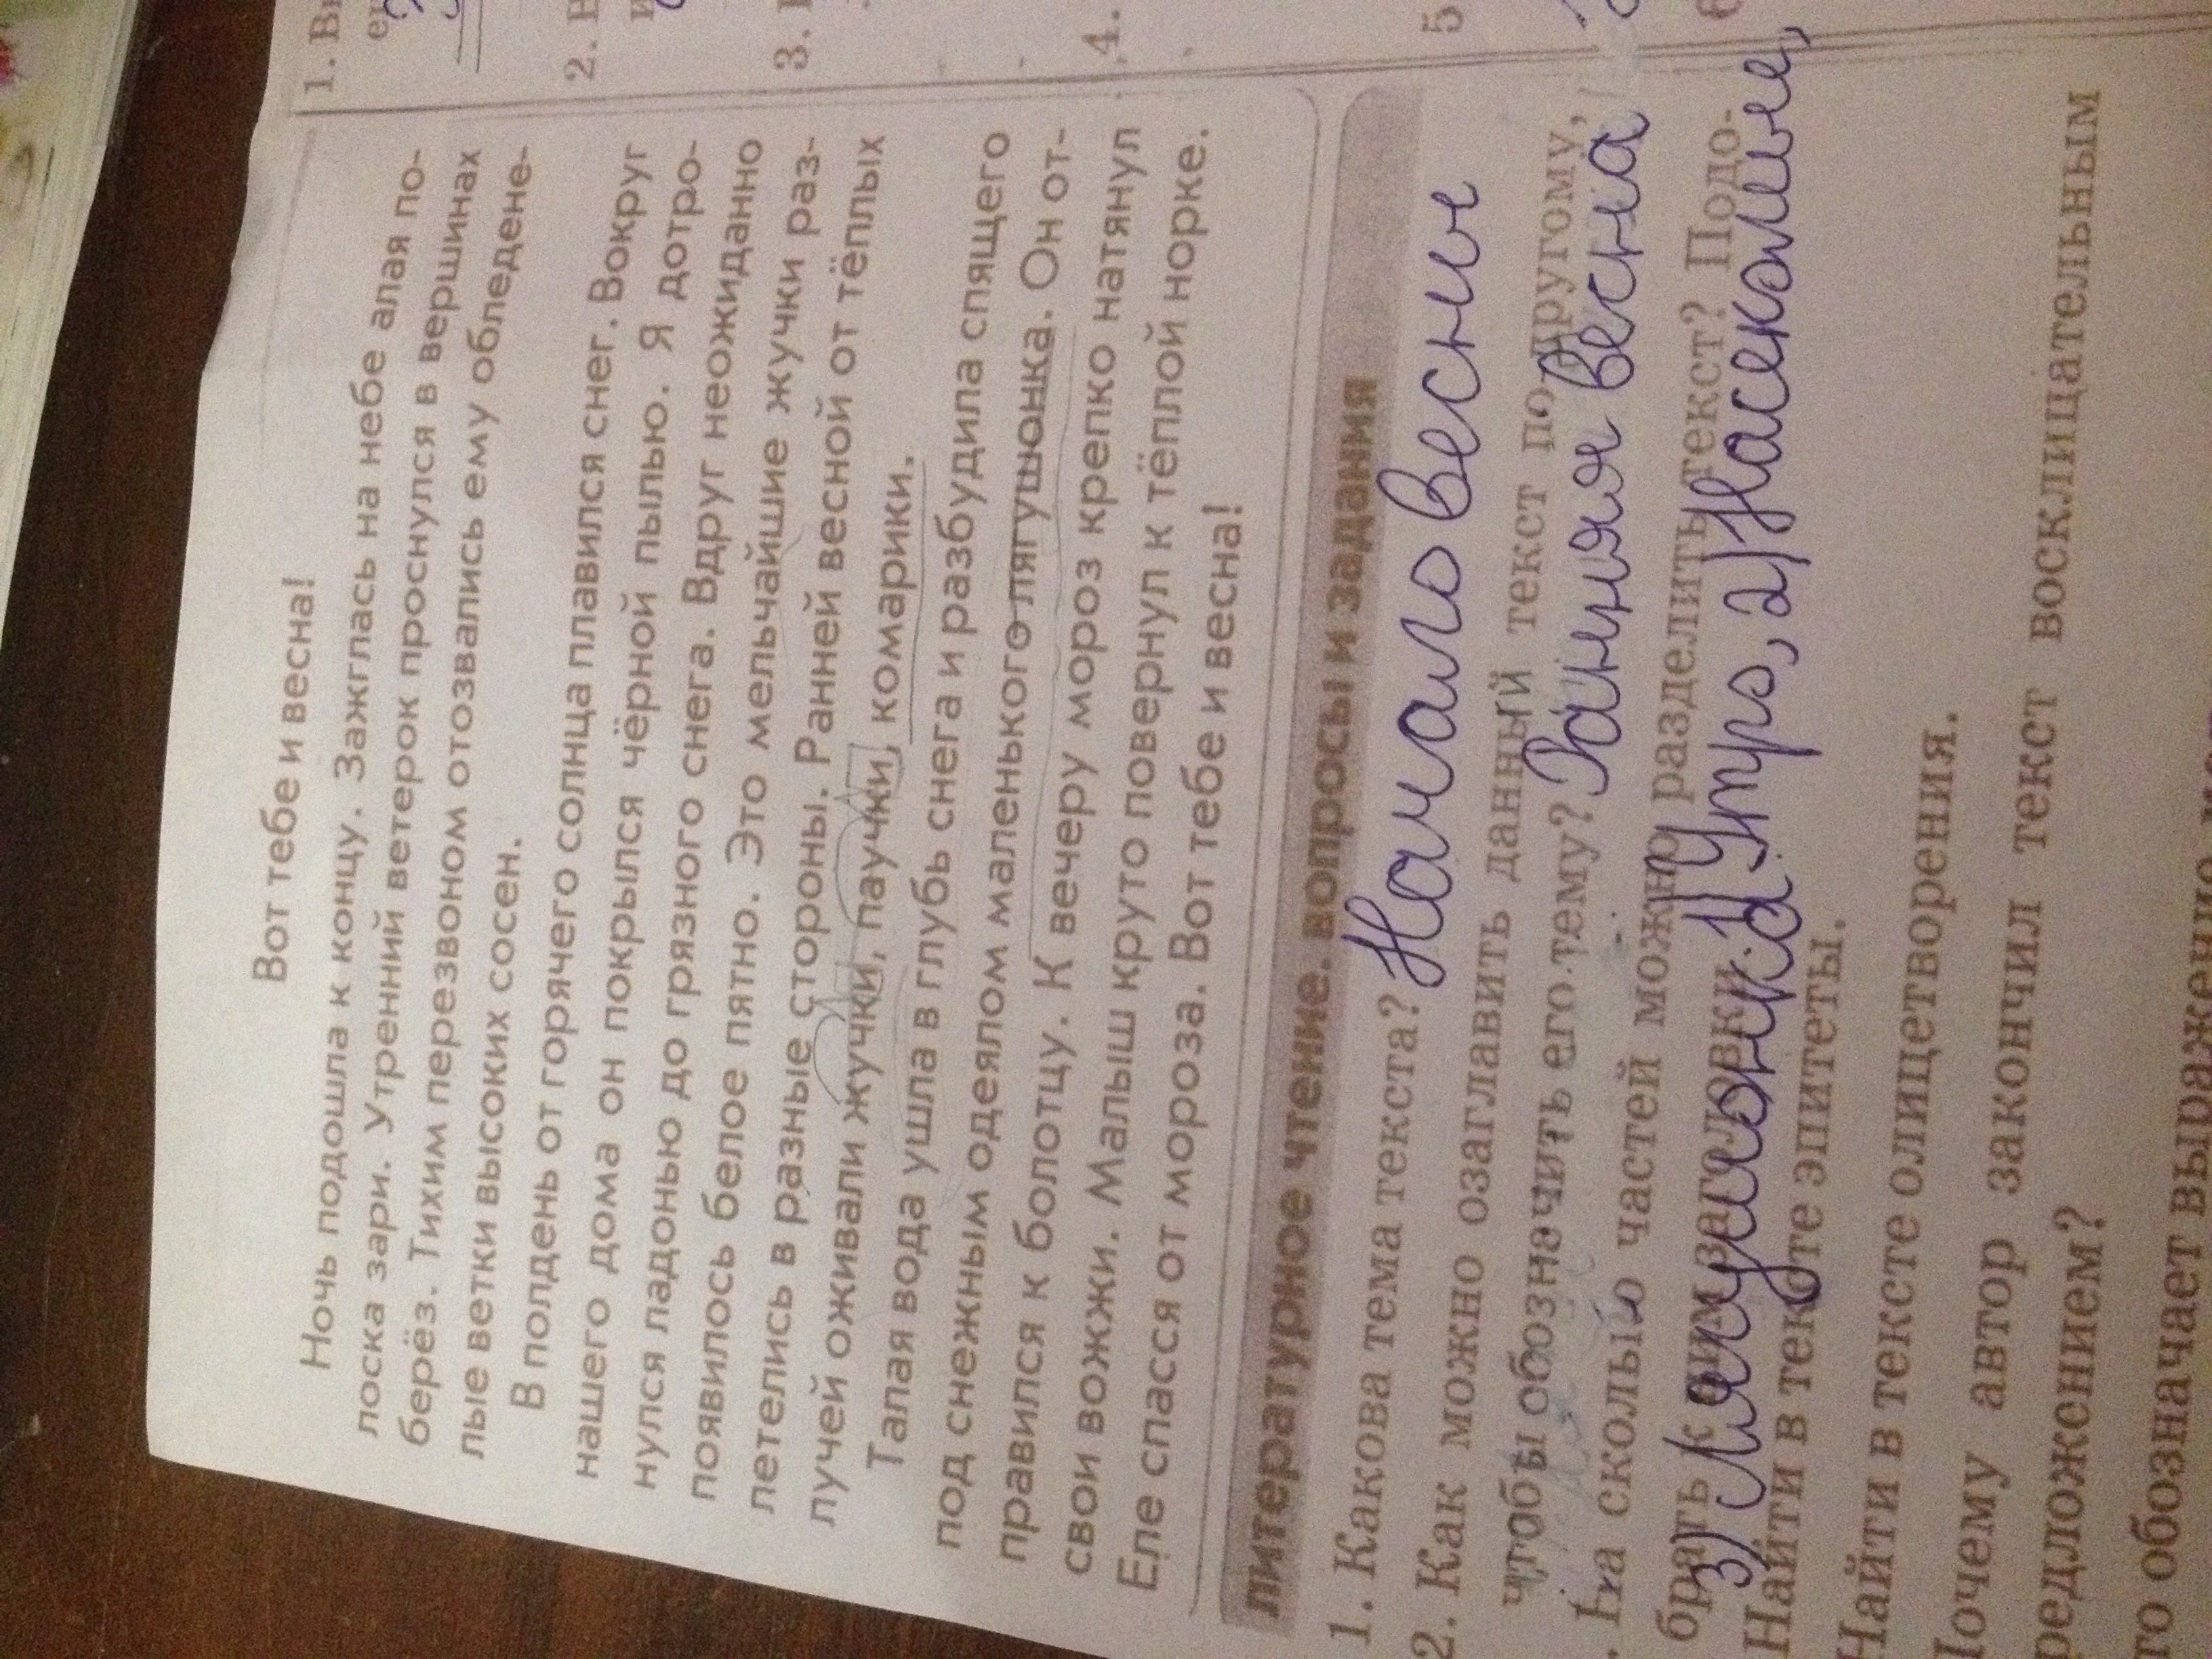 Вот тебе и весна!
Ночь подошла к концу. Зажглась на небе алая по-
лоска зари. Утренний ветерок проснулся в вершинах
берёз. Тихим перезвоном отозвались ему обледене-
лые ветки высоких сосен.
В полдень от горячего солнца плавился снег. Вокруг
нашего дома он покрылся чёрной пылью. Я дотро-
нулся ладонью до грязного снега. Вдруг неожиданно
появилось белое пятно. Это мельчайшие жучки раз-
летелись в разные стороны. Ранней весной от тёплых
лучей оживали жучки, паучки, комарики.
Талая вода ушла в глубь снега и разбудила спящего
под снежным одеялом маленького лягушонка. Он от-
правился к болотцу. К вечеру мороз крепко натянул
свои вожжи. Малыш круто повернул к тёплой норке.
Еле спасся от мороза. Вот тебе и весна!
литературное чтение. вопросы и задания
1. Какова тема текста? Начало весны
2. Как можно озаглавить данный текст по-другому,
чтобы обозначить его тему? Ранняя весна
. На сколько частей можно разделить текст? Подо-
брать к ним заголовки. 1) Утро, 2) Насекомые,
3) Лягушонка
Найти в тексте эпитеты.
Найти в тексте олицетворения.
Почему автор закончил текст восклицательным
редложением?
го обозначает выражение
1. В
2. В
и
3.
4.
5